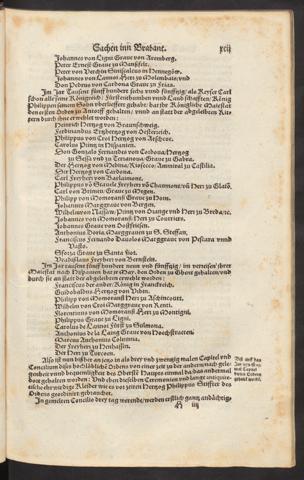 Sachen inn Brabant. xcij
Johannes von Ligni Graue von Arenberg.
Peter Ernest Graue zu Mansfelt.
Peter von Verchin Sinescalcus in Hennegöw.
Johannes von Lannoi Herr zu Molenbais/vnd
Don Pedrus von Cordona Graue zu
Im Jar Tausent fünff hundert sechs vnd fünfftzig/ als Keyser Carl
schon alle seine Königreich/ Fürstenthumber vnd Landschafften/ König
Philippen seinem Sohn vberlieffert gehabt/ hat ihr Königliche Maiestat
den ersten Orden zu Antorff gehalten/ vnnd an statt der abgeleibten Rittern
durch ihre erwehlet worden:
Heinrich Hertzog von Braunschweig.
Ferdinandus Ertzhertzog von Osterreich.
Philippus von Croi Hertzog von Aeschot.
Carolus Printz in Hispanien.
Don Gonzalo Fernandes von Cordona Hertzog
zu Sessa vnd zu Terranoua/ Graue zu Gabra.
Der Hertzog von Medina/Rioseco/ Ammiral zu Castilia.
Der Hertzog von Cardona.
Carl Freyherr von Barlaimont.
Philippus vō Stauele Freyherr vō Chaumont/vn̄ Herr zu Glaiō.
Carl von Brimeu/ Graue zu Megen.
Philipp von Momoransi Graue zu Horn.
Johannes Marggraue von Bargen.
Wilhelmus von Nassaw/ Printz von Orange vnd Herr zu Bredanc.
Johannes von Momoransi Herr zu Courriers.
Johannes Graue von Ostfriesen.
Anthonius Doria/ Marggrauen zu S. Steffan.
Franciscus Fernando Daualos Marggraue von Pescara vnnd
Vasto.
Sforza Graue zu Santa flor.
Freyherr von Bernstein.
Im Jar tausent fünff hundert neun vnd fünfftzig/
Maiestat nach Hispanien
durch sie an statt der abgeleibten erwehlet worden:
Franciscus der ander König in Franckreich.
Guidobaldus Hertzog von Vrbin.
Philipp von Momoransi Herr zu
Wilhelm von Croi Marggraue von Renti.
Florentinus von Momoransi Herr von Montigni.
Philippus Graue zu Ligni.
Carolus de Lannoi Fürst zu Sulmona.
Anthonius de la Laing Graue von Hochstratten.
Marcus Anthonius Columna.
Der Freyherr zu Neuhausen.
Der Herr zu Turcoen.
Also ist nun bißher an jetzo in als drey vnd zwentzig malen Capitel vnd
Concilium dises hochlöblichē Ordens von einer zeit zu der andern/nach gelegenheit
vnd bequemligkeit des Oberste Haupts einmal da das andermal
dort gehalten worden: Vnd eben dieselben Ceremonien vnd lange antiquitetische
ehrwirdige Kleider wie es vor zeiten Hertzog Philippus Stiffter des
Ordens geordnet gebrauchet.
In gemelten Concilio drey tag werende/ werden erstlich gantz andächtig,